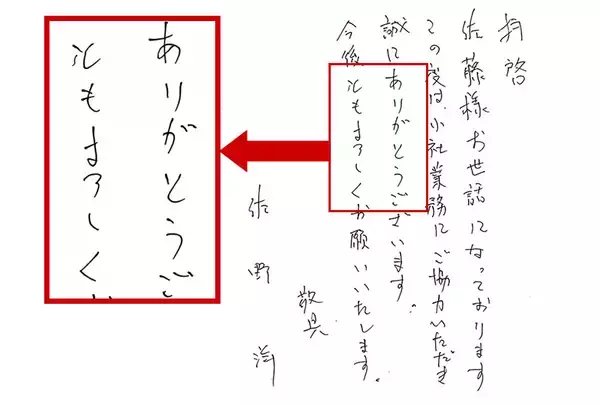 拝啓
佐藤様お世話になっております
この度は小社業務にご協力いただき
誠にありがとうございます。
今後ともよろしくお願いいたします。
敬具
佐野
ありがとうご
ともよろしく